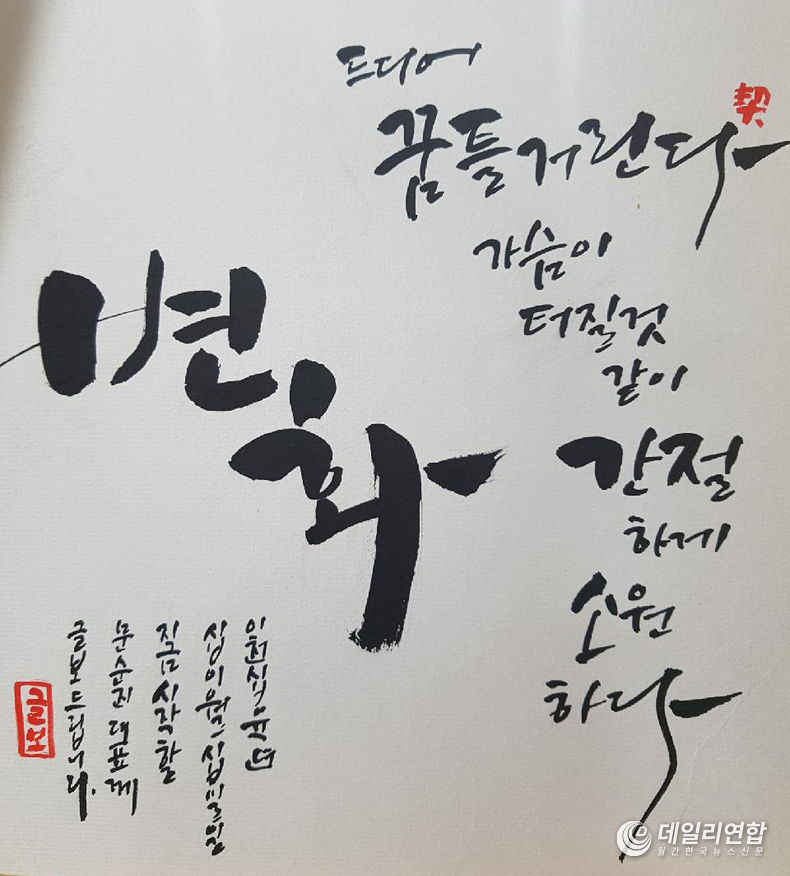 드디어
꿈틀거린다
가슴이
터질것
같이
간절
하게
소원
하다
변
화
이천십육년
십이월
지금 시작할
문순진 대표께
글보드립니다.
글보
데일리연합
월간한국뉴스신문